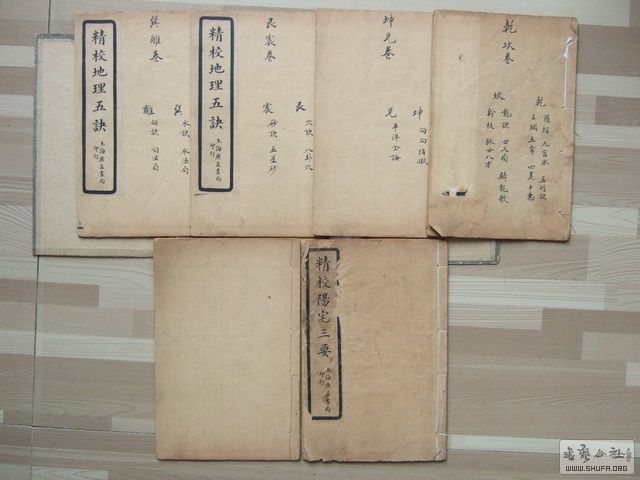 精校地理五訣
上海廣益書局
印行
巽離卷
巽 水訣 水法局
離 向訣 向法局
精校地理五訣
上海廣益書局
印行
艮震卷
艮 穴訣 八卦穴
震 砂訣 五星砂
坤兌卷
坤 向向
兌 平洋全論
乾坎卷
乾 羅經 九宮水 五行訣
三綱五常 四美十惡
坎 龍訣 四大局 騎龍歌
幹枝 分八方
精校陽宅三要
上海廣益書局
印行
書藝公社
WWW.SHUFA.ORG